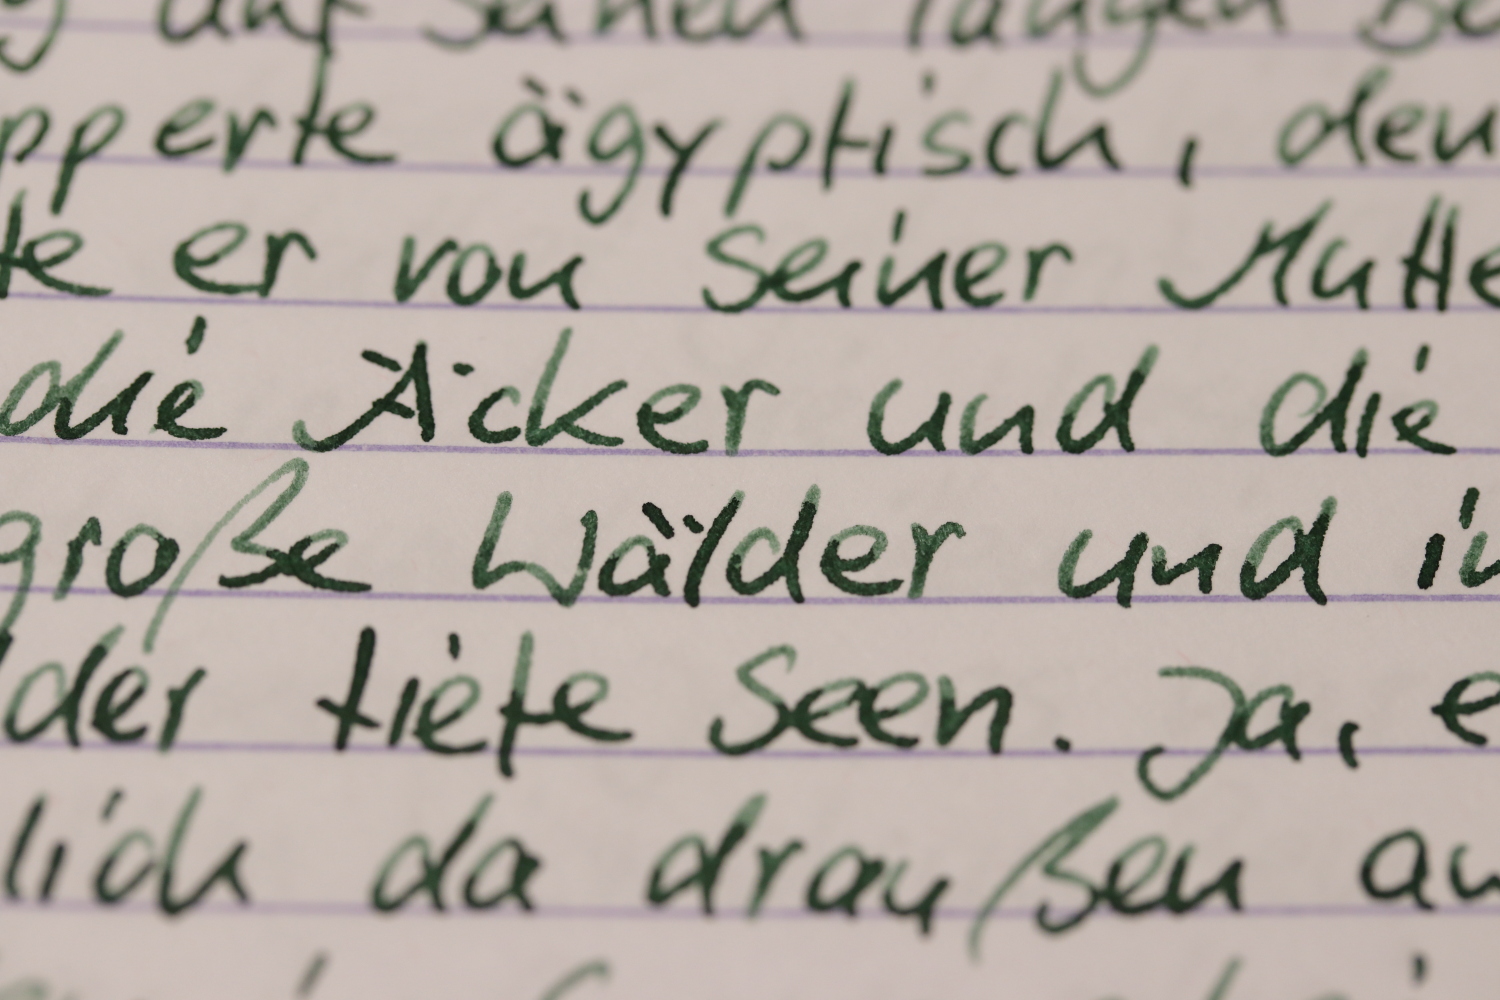 auf seinen langen Be
pperte ägyptisch, den
te er von seiner Mutte
die Äcker und die
große Wälder und in
der tiefe Seen. Ja, e
lich da draußen au